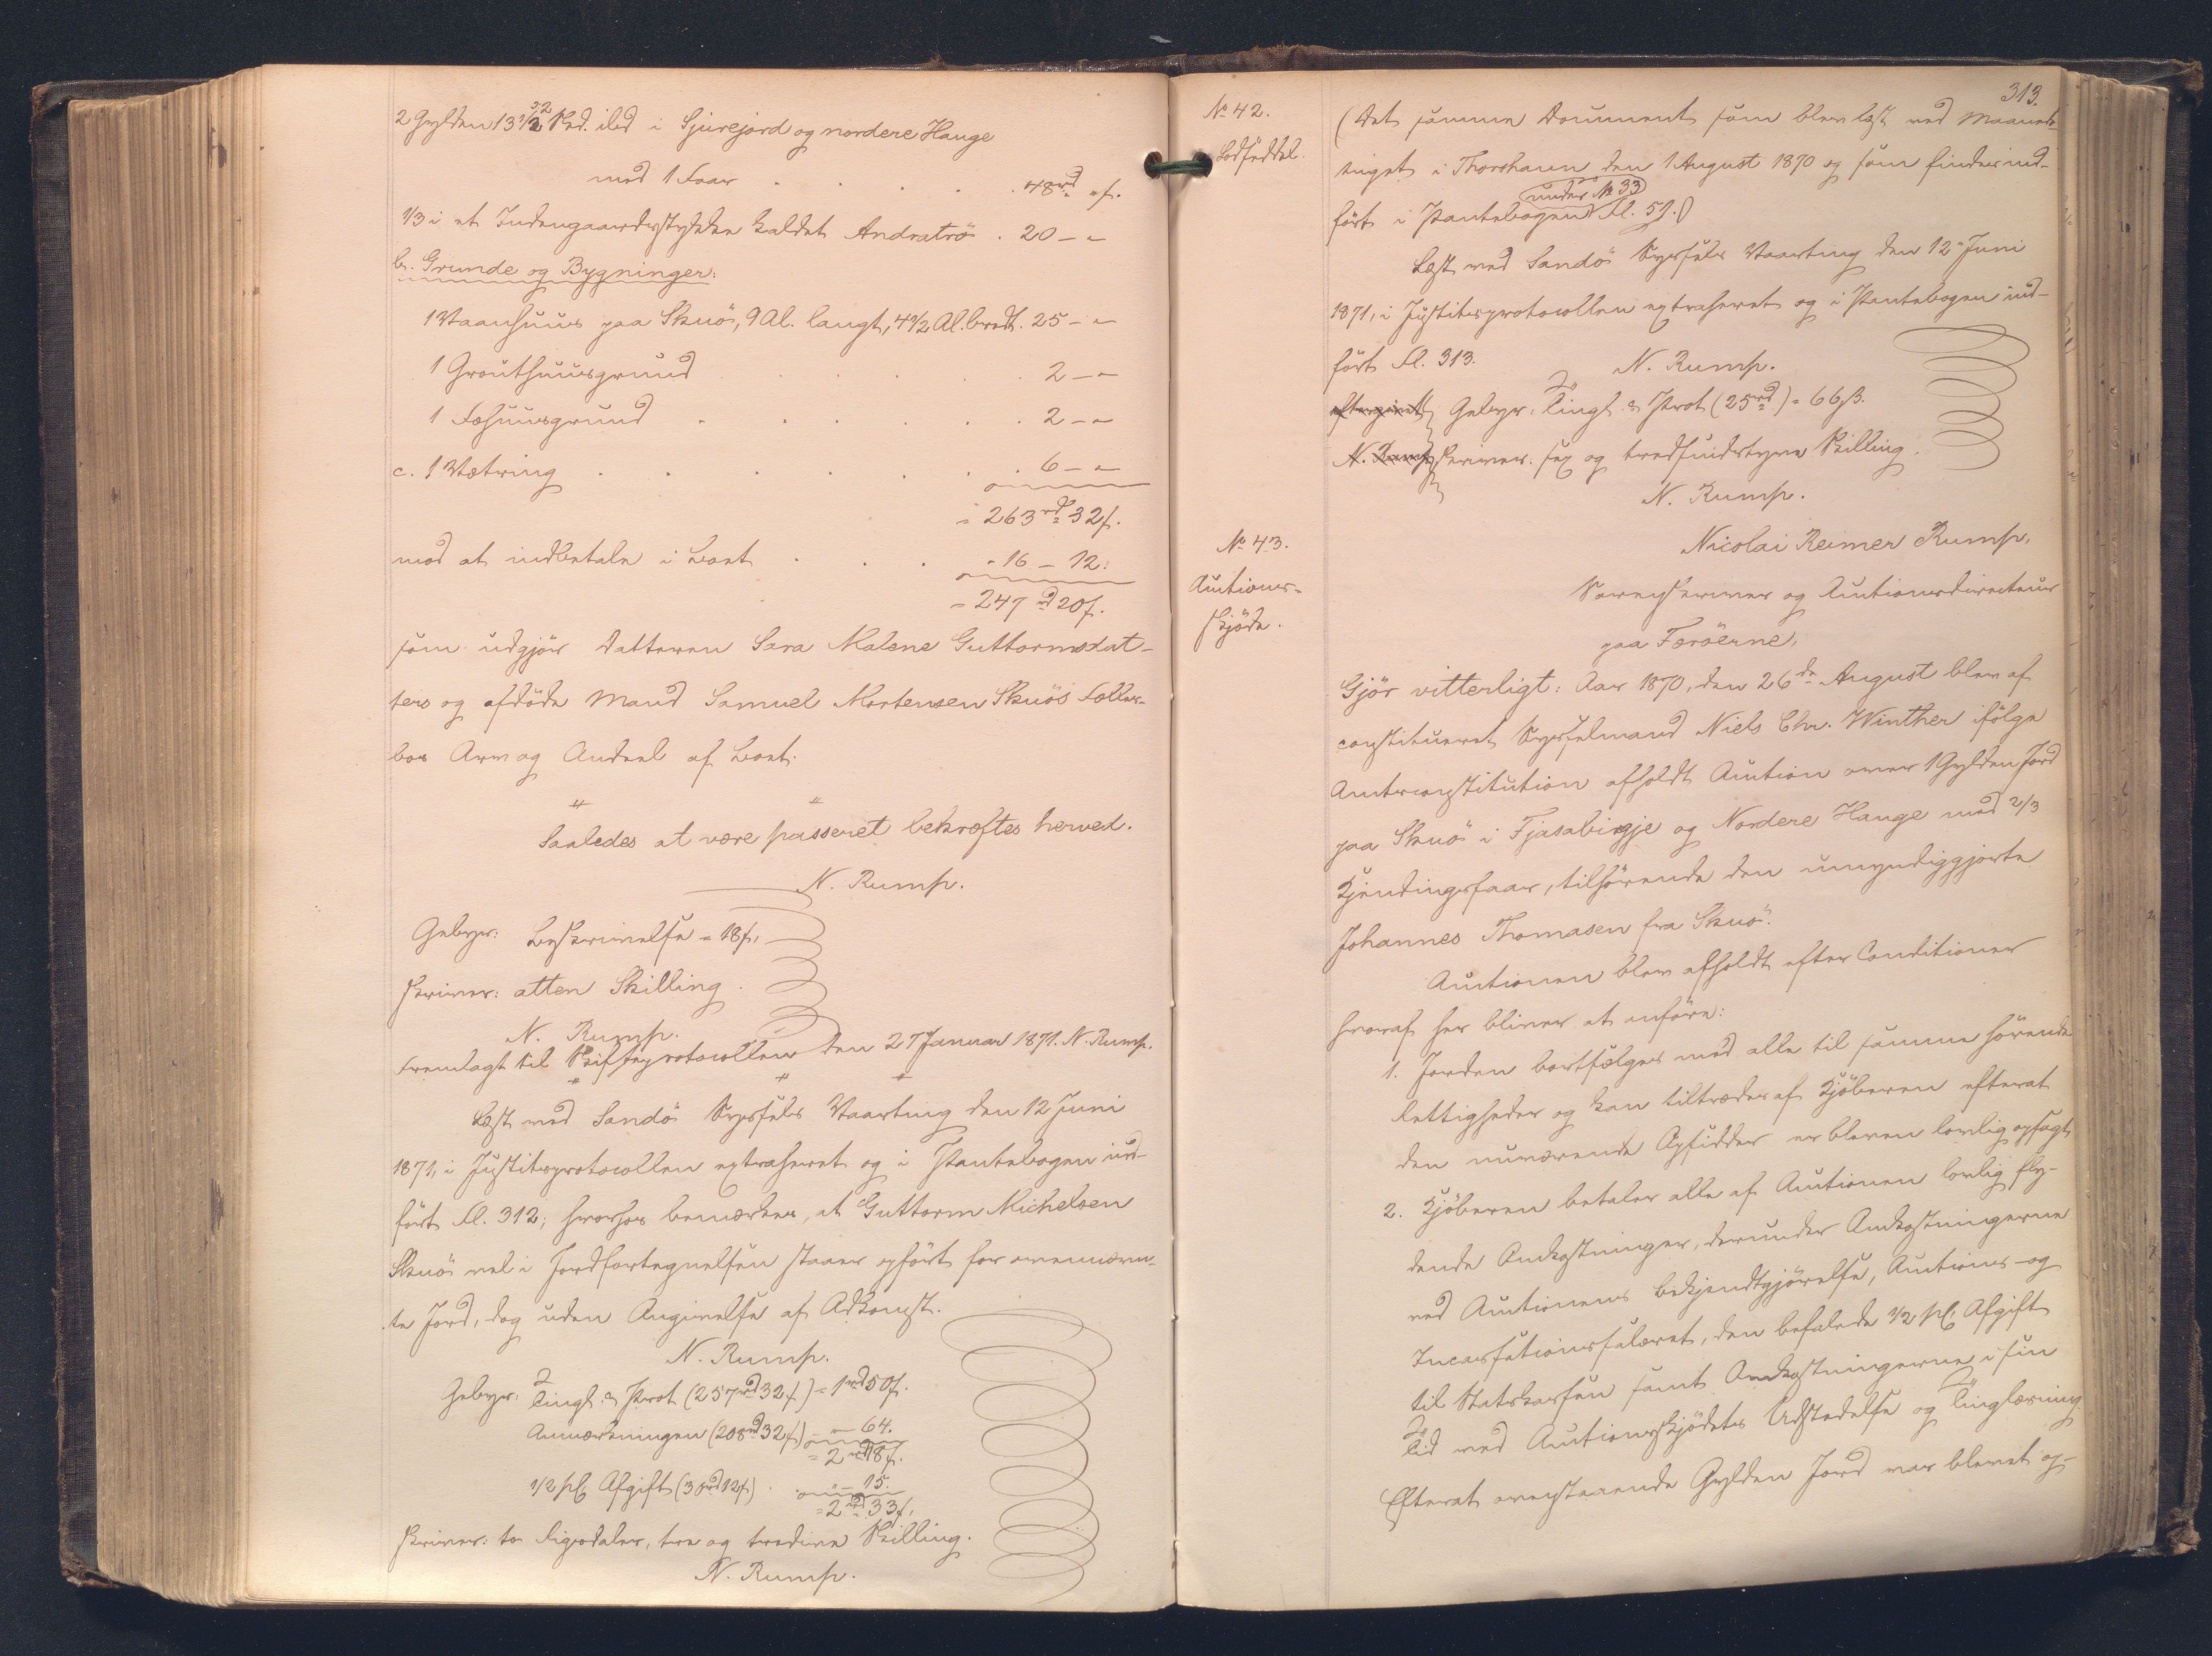 2 Gylden 13 1/2 Skd. ibid i Sjurejord og nordere Hauge
med 1 Faar . . . . . 48rd " s.
1/3 i et Indengaardsstykke kaldet Andratrö . 20 - "
b. Grunde og Bygninger:
1 Vaanhuus paa Skuö, 9 Al. langt, 4 1/2 Al. bredt. 25 - "
1 Grouthuusgrund . . . . . 2 - "
1 Fæhuusgrund . . . . . . 2 - "
c. 1 Vætring . . . . . . 6 - "
= 263rd 32 s.
mod at indbetale i Boet . . . " 16 - 12:
= 247rd 20 s.
som udgjör Datteren Sara Malene Guttormsdat-
ters og afdöde Mand Samuel Mortensen Skuös Fælles-
bos Arv og Andeel af Boet.
" "
Saaledes at være passeret bekræftes herved.
N. Rump.
Gebyr: Beskrivelse = 18 s.
skriver: atten Skilling.
N. Rump.
Fremlagt til Skifteprotocollen den 27 Januar 1871. N. Rump.
" " "
Læst ved Sandö Syssels Vaarting den 12 Juni
1871, i Justitsprotocollen extraheret og i Pantebogen ind-
fört Fl. 312; hvorhos bemærkes, at Guttorm Michelsen
Skuö vel i Jordfortegnelsen staaer opfört for ovennævn-
te Jord, dog uden Angivelse af Adkomst.
N. Rump.
Gebyr: Tingl. & Prot (257rd 32 s.) = 1rd 50 s.
Anmærkningen (208rd 32 s.) - " - 64.
= 2rd 18 s.
1/2 pCt Afgift (30rd 12 s) . . " - 15.
= 2rd 33 s.
skriver: to Rigsdaler, tre og tredive Skilling.
N. Rump.
313.
No 42.
Lodseddel.
(Det samme Document som blev læst ved Maaneds-
tinget i Thorshavn den 1 August 1870 og som findes ind-
under No 33
fört i Pantebogen Fl. 51.)
Læst ved Sandö Syssels Vaarting den 12 Juni
1871, i Justitsprotocollen extraheret og i Pantebogen ind-
fört Fl. 313.
N. Rump.
eftergivet Gebyr: Tingl. & Prot (25rd) = 66 s.
N. Rump skriver: sex og tredsindstyve Skilling.
N. Rump.
No 43.
Auctions-
skjöde.
Nicolai Reimer Rump,
Sorenskriver og Auctionsdirecteur
paa Færöerne,
Gjör vitterligt: Aar 1870, den 26de August blev af
constitueret Sysselmand Niels Chr. Winther ifölge
Amtsconstitution afholdt Auction over 1 Gylden Jord
paa Skuö i Fjasabirgje og Nordere Hauge med 2/3
Kjendingsfaar, tilhörende den umyndiggjorte
Johannes Thomasen fra Skuö.
Auctionen blev afholdt efter Conditioner
hvoraf her bliver at anföre:
1. Jorden bortsælges med alle til samme hörende
Rettigheder og kan tiltrædes af Kjöberen efterat
den nuværende Opsidder er bleven lovlig opsagt
2. Kjöberen betaler alle af Auctionen lovlig fly-
dende Omkostninger, derunder Omkostningerne
ved Auctionens Bekjendtgjörelse, Auctions- og
Incassationssalæret, den befalede 1/2 pCt Afgift
til Statskassen samt Omkostningerne i sin
Tid ved Auctionsskjödets Udstedelse og Tinglæsning.
Efterat ovenstaaende Gylden Jord var blevet op-